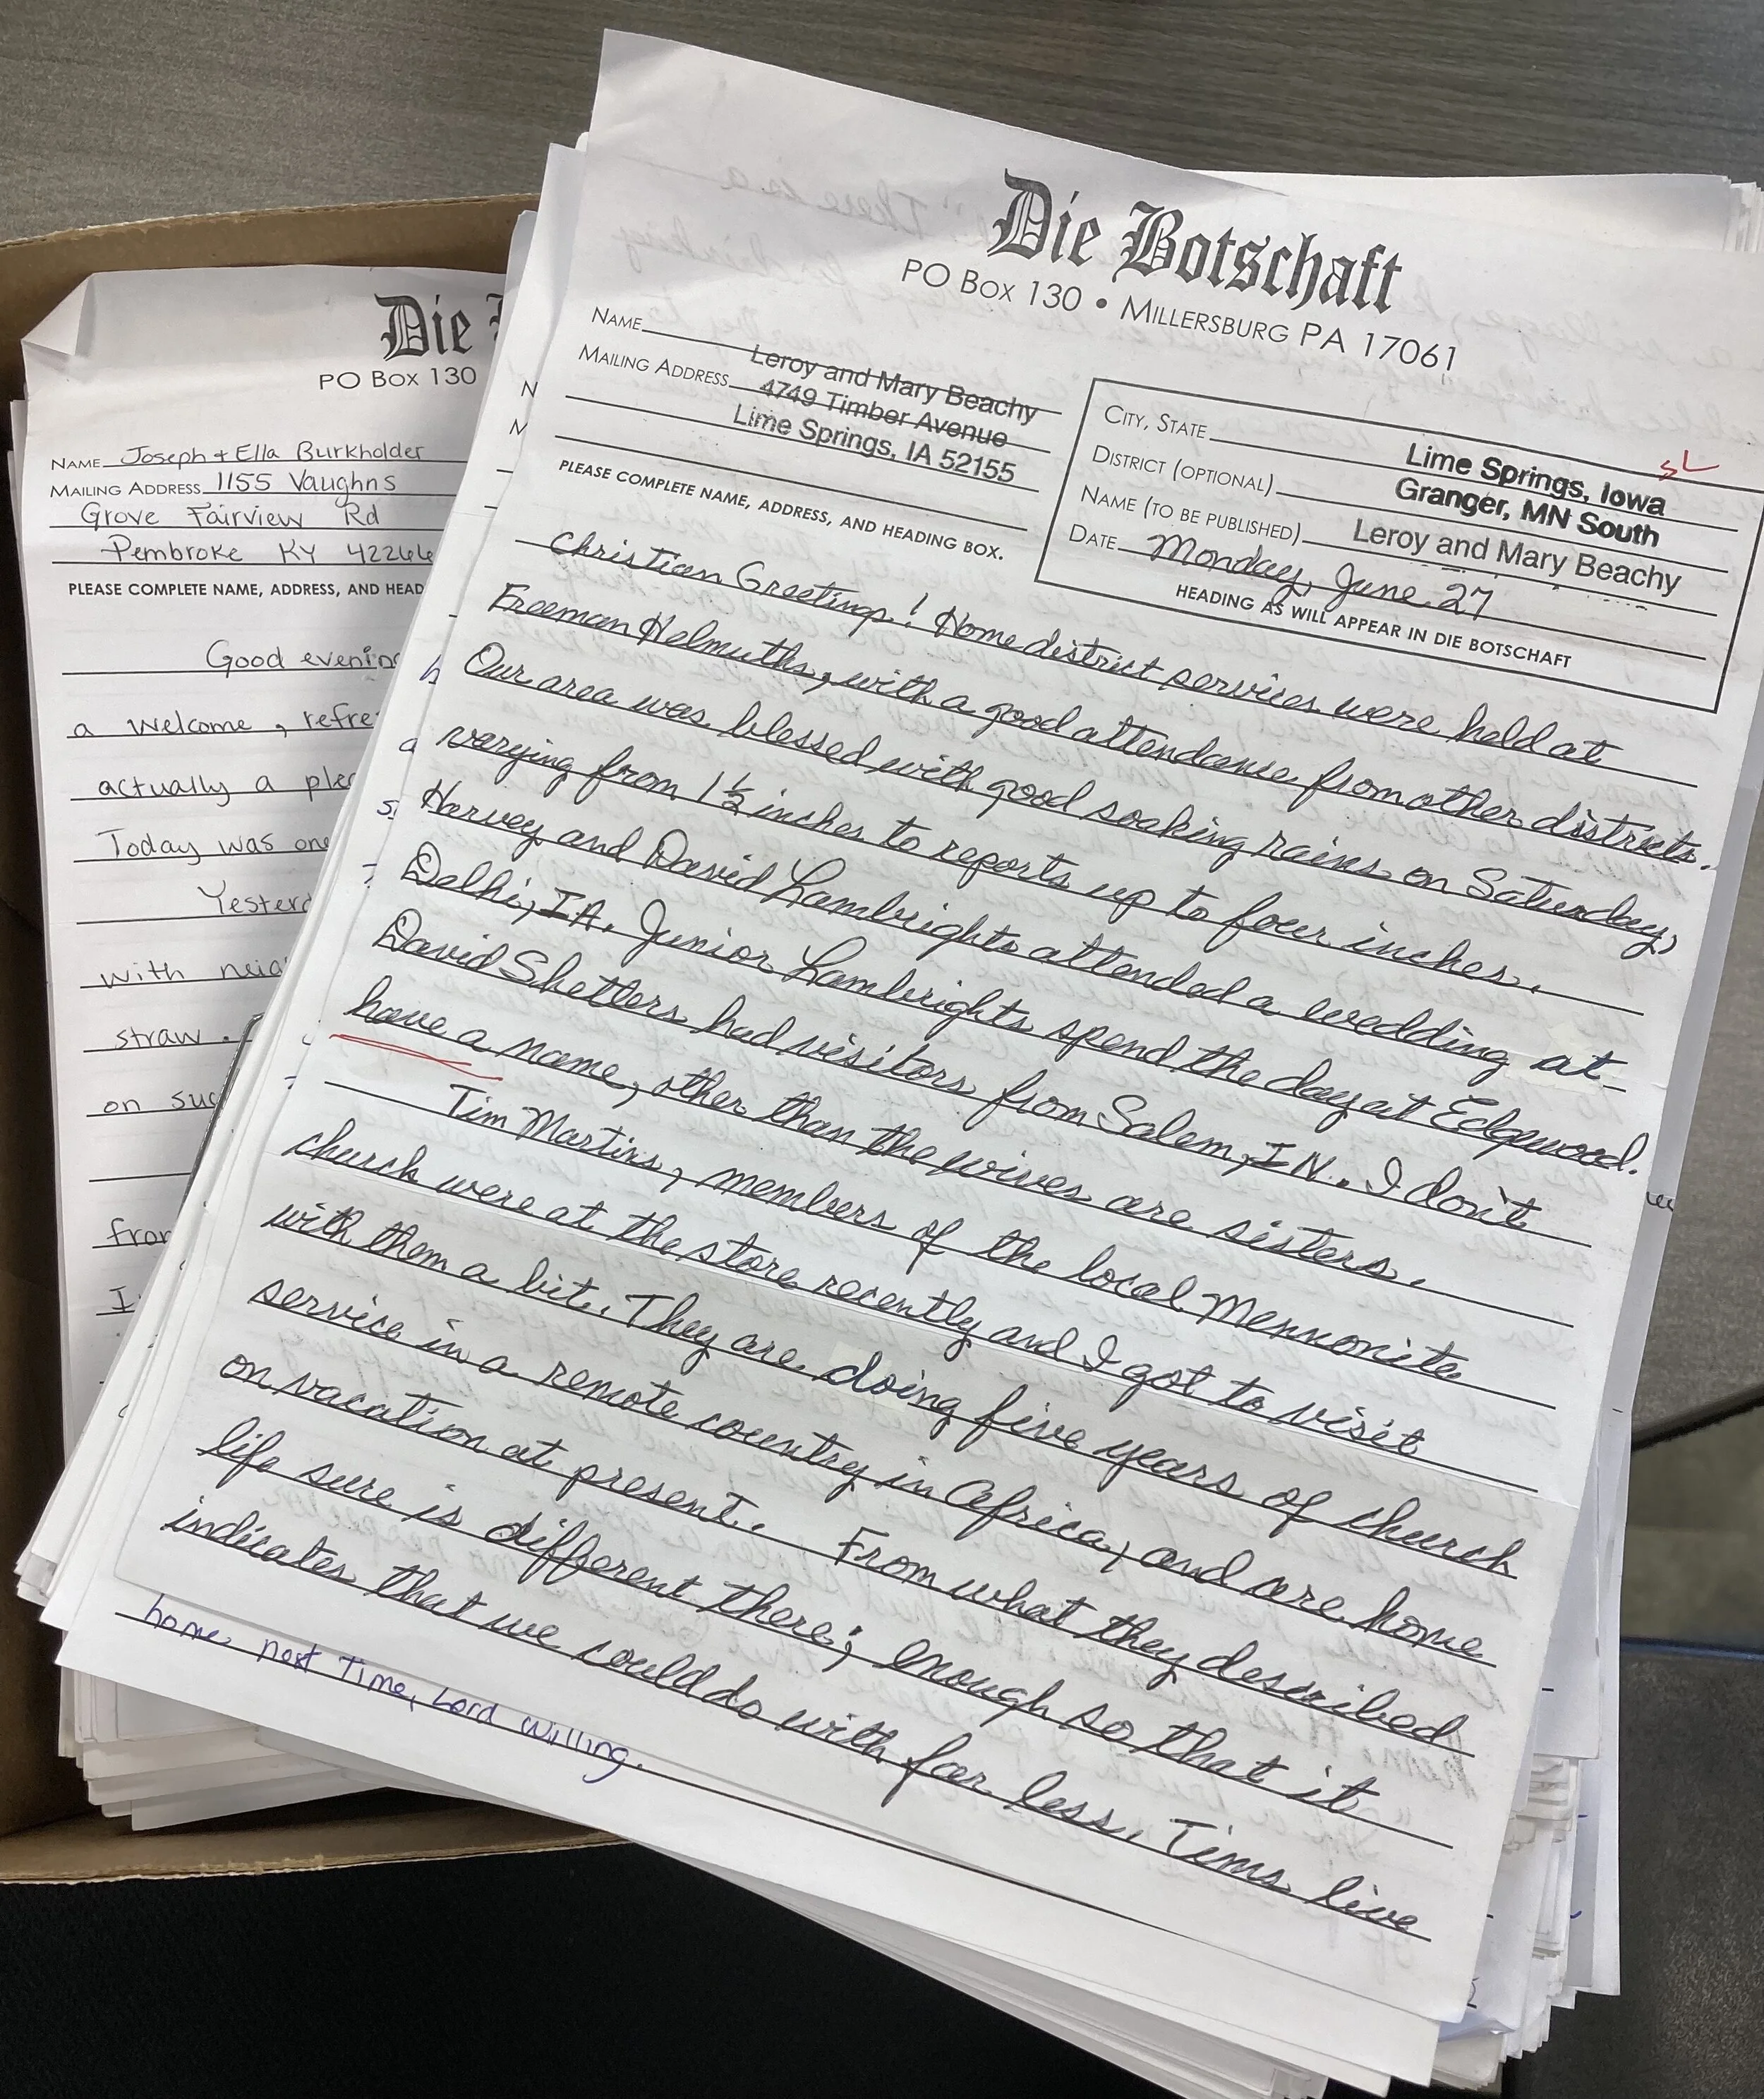 Die
PO Box 130
Name Joseph + Ella Burkholder
Mailing Address 1155 Vaughns
Grove Fairview Rd
Pembroke KY 42266
PLEASE COMPLETE NAME, ADDRESS, AND HEAD
Good evening
a welcome, refre
actually a ple
Today was one
Yesterd
with neig
straw.
on suc
from
I
Die Botschaft
PO Box 130 • Millersburg PA 17061
Name
Leroy and Mary Beachy
Mailing Address 4749 Timber Avenue
Lime Springs, IA 52155
PLEASE COMPLETE NAME, ADDRESS, AND HEADING BOX.
City, State Lime Springs, Iowa
District (optional) Granger, MN South
Name (to be published) Leroy and Mary Beachy
Date Monday, June 27
HEADING AS WILL APPEAR IN DIE BOTSCHAFT
Christian Greetings! Home district services were held at
Freeman Helmuths, with a good attendance from other districts.
Our area was blessed with good soaking rains on Saturday,
varying from 1½ inches to reports up to four inches.
Harvey and David Lambrights attended a wedding at
Delhi, IA. Junior Lambrights spend the day at Edgewood.
David Shetlers had visitors from Salem, IN. I don't
have a name, other than the wives are sisters.
Tim Martins, members of the local Mennonite
church were at the store recently and I got to visit
with them a bit. They are doing five years of church
service in a remote country in Africa, and are home
on vacation at present. From what they described
life sure is different there; enough so that it
indicates that we could do with far less. Tims live
home next Time, Lord Willing.